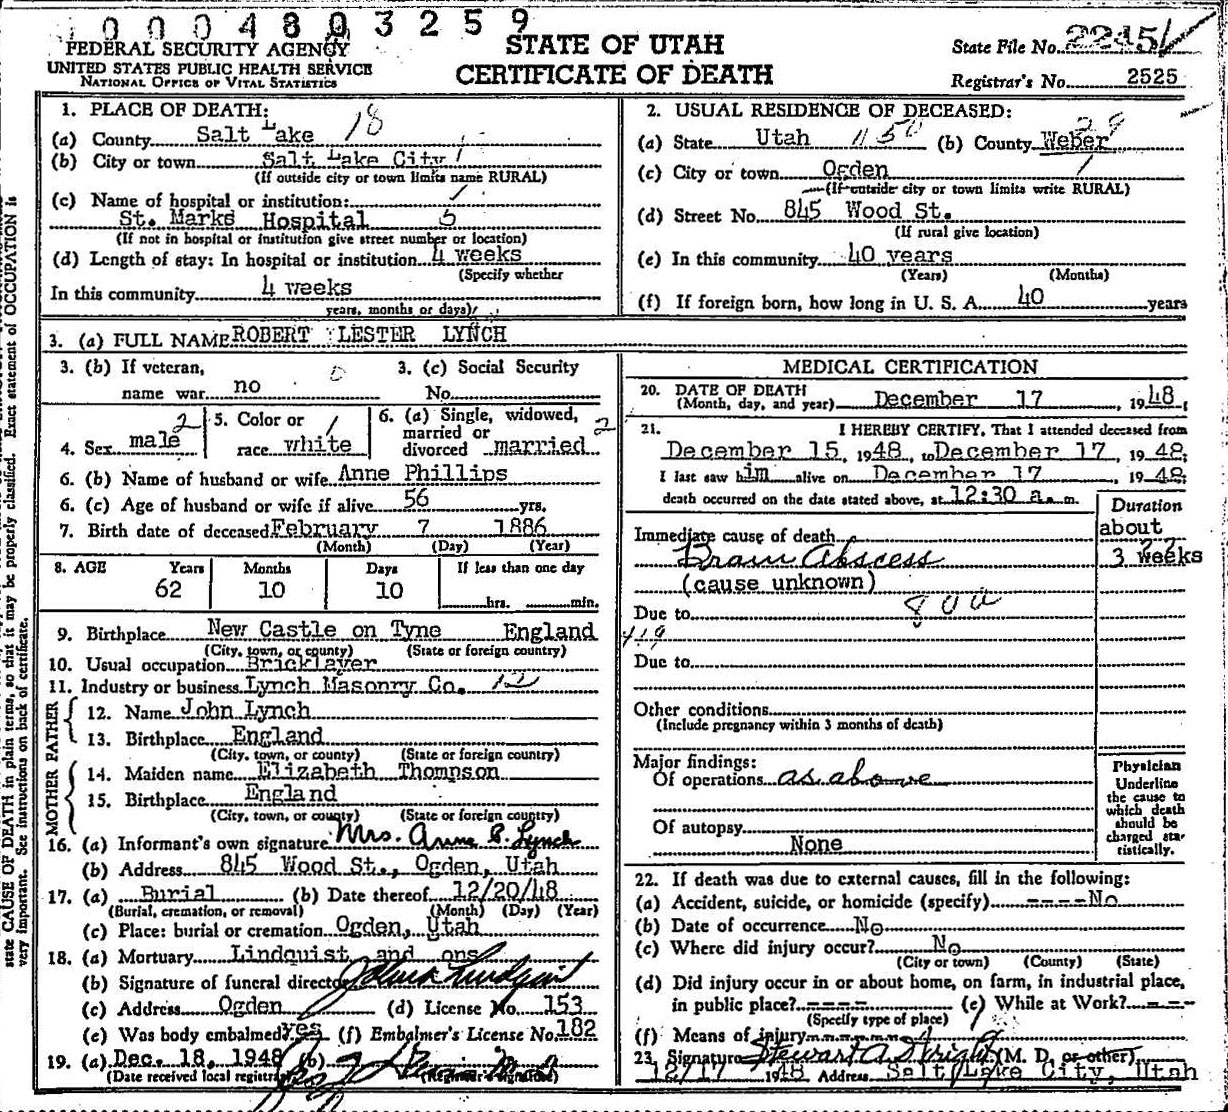 0 0 0 4 8 0 3 2 5 9
FEDERAL SECURITY AGENCY
UNITED STATES PUBLIC HEALTH SERVICE
NATIONAL OFFICE OF VITAL STATISTICS
STATE OF UTAH
CERTIFICATE OF DEATH
State File No.
Registrar's No. 2525
state CAUSE OF DEATH in plain terms, so that it may be properly classified. Exact statement of OCCUPATION is
very important. See instructions on back of certificate.
1. PLACE OF DEATH:
(a) County Salt Lake 18
(b) City or town Salt Lake City 1
(If outside city or town limits name RURAL)
(c) Name of hospital or institution:
St. Marks Hospital 5
(If not in hospital or institution give street number or location)
(d) Length of stay: In hospital or institution 4 weeks
(Specify whether
In this community 4 weeks
years, months or days)
2. USUAL RESIDENCE OF DECEASED:
(a) State Utah (b) County Weber 29
(c) City or town Ogden 1
(If outside city or town limits write RURAL)
(d) Street No. 845 Wood St.
(If rural give location)
(e) In this community 40 years
(Years) (Months)
(f) If foreign born, how long in U. S. A. 40 years
3. (a) FULL NAME ROBERT LESTER LYNCH
3. (b) If veteran, name war no 0
3. (c) Social Security No.
4. Sex male 2
5. Color or race white 1
6. (a) Single, widowed, married or divorced married 2
6. (b) Name of husband or wife Anne Phillips
6. (c) Age of husband or wife if alive 56 yrs.
7. Birth date of deceased February 7 1886
(Month) (Day) (Year)
8. AGE Years Months Days If less than one day
62 10 10 hrs. min.
9. Birthplace New Castle on Tyne England
(City, town, or county) (State or foreign country)
10. Usual occupation Bricklayer
11. Industry or business Lynch Masonry Co.
FATHER
12. Name John Lynch
13. Birthplace England
(City, town, or county) (State or foreign country)
MOTHER
14. Maiden name Elizabeth Thompson
15. Birthplace England
(City, town, or county) (State or foreign country)
16. (a) Informant's own signature Mrs. Anne P. Lynch
(b) Address 845 Wood St., Ogden, Utah
17. (a) Burial (b) Date thereof 12/20/48
(Burial, cremation, or removal) (Month) (Day) (Year)
(c) Place: burial or cremation Ogden, Utah
18. (a) Mortuary Lindquist and ons
(b) Signature of funeral director
(c) Address Ogden (d) License No. 153
(e) Was body embalmed? yes (f) Embalmer's License No. 182
19. (a) Dec. 18, 1948 (b)
(Date received local registrar) (Registrar's signature)
MEDICAL CERTIFICATION
20. DATE OF DEATH
(Month, day, and year) December 17, 1948;
21. I HEREBY CERTIFY, That I attended deceased from
December 15, 1948, to December 17, 1948;
I last saw him alive on December 17 1948;
death occurred on the date stated above, at 12:30 a. m.
Duration
Immediate cause of death
about
Brain Abscess 3 weeks
(cause unknown)
Due to
Due to
Other conditions
(Include pregnancy within 3 months of death)
Major findings:
Of operations as above
Of autopsy
None
Physician
Underline
the cause to
which death
should be
charged sta-
tistically.
22. If death was due to external causes, fill in the following:
(a) Accident, suicide, or homicide (specify) ----No
(b) Date of occurrence No
(c) Where did injury occur? No
(City or town) (County) (State)
(d) Did injury occur in or about home, on farm, in industrial place,
in public place? ---- (e) While at Work? ---
(Specify type of place)
(f) Means of injury
23. Signature Stewart A. Wright (M. D. or other)
12/17 1948 Address Salt Lake City, Utah